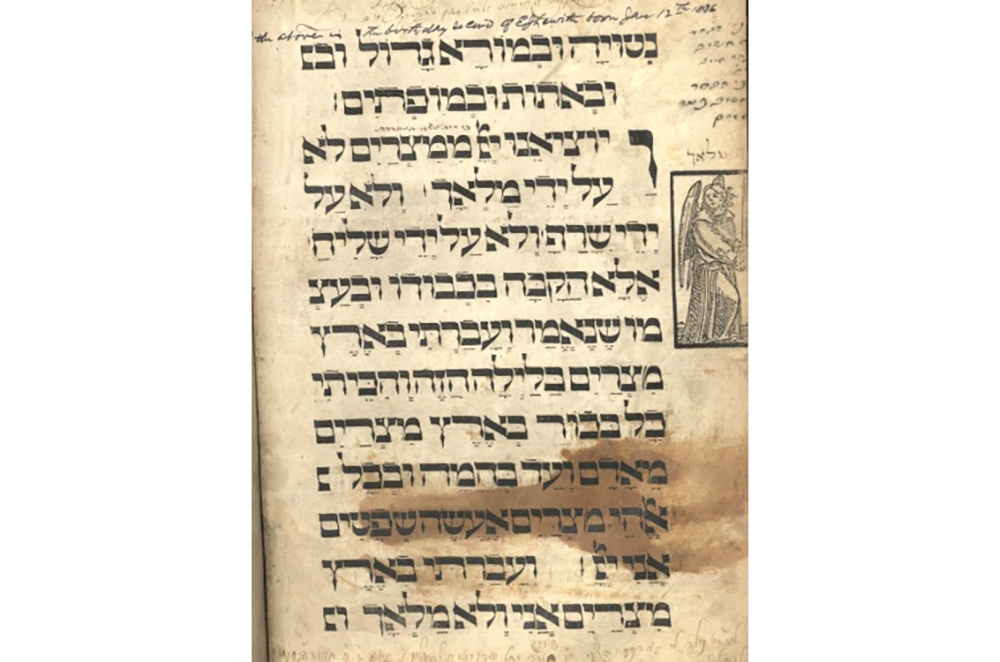 the above is the birthday record of born Jan 12th
נטויה ובמורא גדול ובא
ובאתות ובמופתים:
ויוציאנו יי ממצרים לא
על ידי מלאך ולא על
ידי שרף ולא על ידי שליח
אלא הקבה בכבודו ובעצ
מו שנאמר ועברתי בארץ
מצרים בלילה הזה והכיתי
כל בכור בארץ מצרים
מאדם ועד בהמה ובכל
אלהי מצרים אעשה שפטים
אני יי: ועברתי בארץ
מצרים אני ולא מלאך וה
מלאך